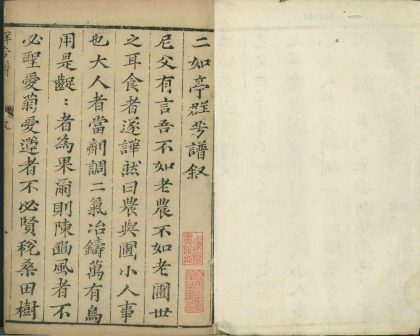 二如亭群芳譜叙
尼父有言吾不如老農不如老圃世
之耳食者遂譁然曰農與圃小人事
也大人者當劑調二氣冶鑄萬有烏
用是齪：者為果爾則陳豳風者不
必聖愛菊愛蓮者不必賢稅桑田樹